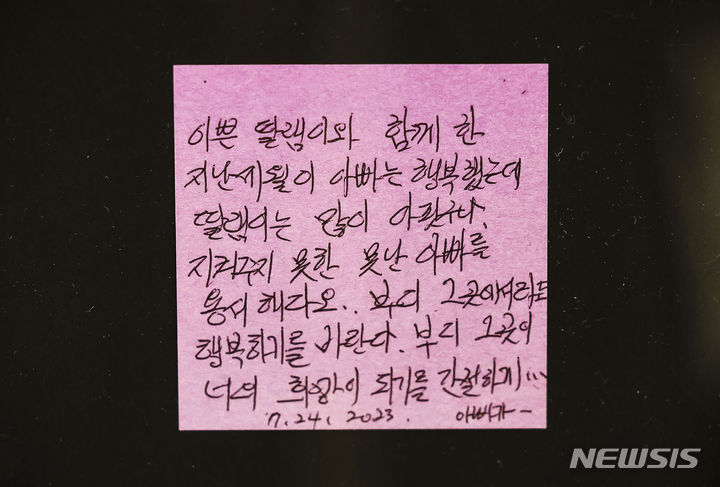 이쁜 딸램이와 함께 한
지난세월이 아빠는 행복했는데
딸램이는 많이 아팠구나.
지켜주지 못한 못난 아빠를
용서해다오.. 부디 그곳에서라도
행복하기를 바란다. 부디 그곳이
너의 희망이 되기를 간절하게...
7. 24. 2023. 아빠가-
NEWSIS